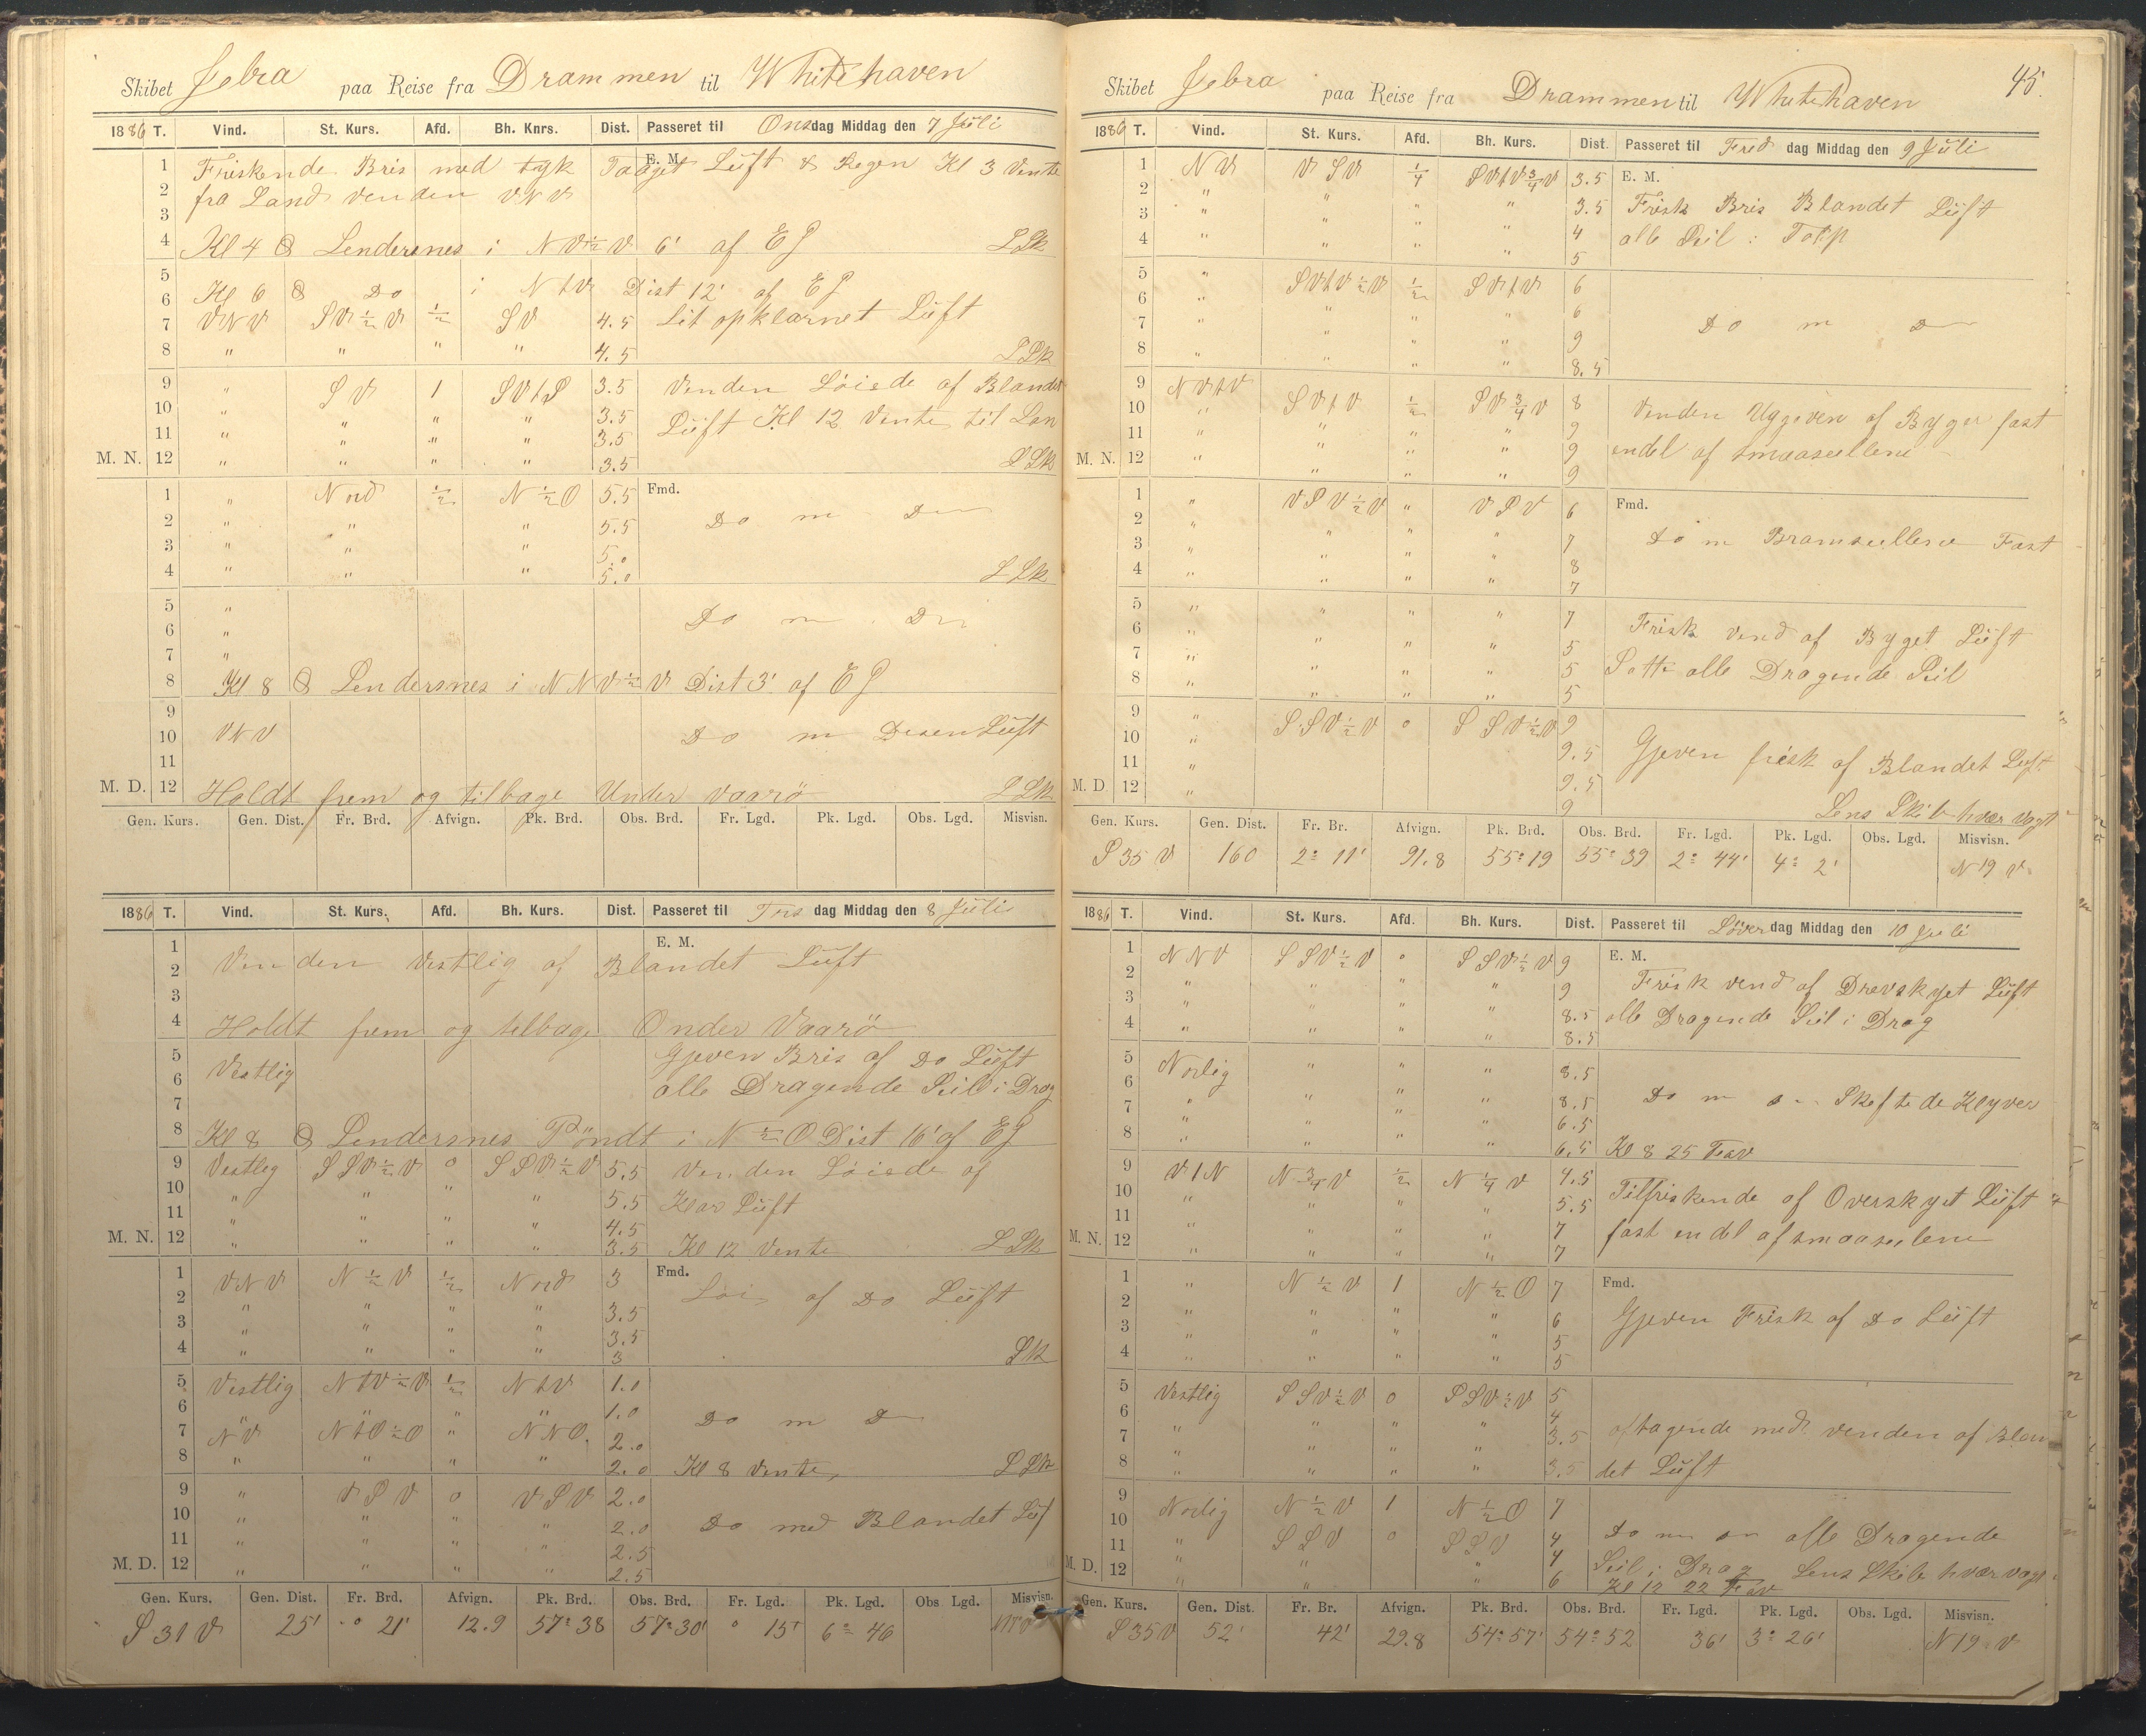 Skibet Jebra paa Reise fra Drammen til Whitehaven
1886 T. Vind. St. Kurs. Afd. Bh. Knrs. Dist. Passeret til Onsdag Middag den 7 Juli
E. M.
1 Friskende Bris med tyk Taaget Luft & Regen Kl 3 Vente
2 fra Land venden VNV
3
4 Kl 4 Lendersnes i NV½V 6' af EG LLk
5
6 Kl 6 Do i NtV Dist 12' af EG
7 VNV SV½V ½ SV 4.5 Lit opklarnet Luft
8 " " " " 4.5 LLk
9 " SV 1 SVtS 3.5 Venden Löiede af Blandet
10 " " " " 3.5 Luft Kl 12 Vente til Lan
11 " " " " 3.5
M. N. 12 " " " " 3.5 LLk
1 " Nord ½ N½O 5.5 Fmd.
2 " " " 5.5 Do m Do
3 " " " 5.0
4 " " " 5.0 LLk
5 "
6 " Do m Do
7 "
8 Kl 8 Lendersnes i NNV½V Dist 3' af EG
9
10 VNV Do m Disen Luft
11
M. D. 12 Holdt frem og tilbage Under vaarö LLk
Gen. Kurs. Gen. Dist. Fr. Brd. Afvign. Pk. Brd. Obs. Brd. Fr. Lgd. Pk. Lgd. Obs. Lgd. Misvisn.
1886 T. Vind. St. Kurs. Afd. Bh. Kurs. Dist. Passeret til Tors dag Middag den 8 Juli
E. M.
1
2 Venden Vestlig af Blandet Luft
3
4 Holdt frem og tilbage Onder Vaarö
5 Gjeven Bris af Do Luft
6 Vestlig alle Dragende Seil i Drag
7
8 Kl 8 Lendersnes Pöndt i N½O Dist 16' af EG
9 Vestlig SSV½V 0 SSV½V 5.5 Venden Löiede af
10 " " " " 5.5 Klar Luft
11 " " " " 4.5
M. N. 12 " " " " 3.5 Kl 12 Vente LLk
1 VNV N½V ½ Nord 3 Fmd.
2 " " " " 3.5 Löi af Do Luft
3 " " " " 3.5
4 " " " " 3 LLk
5 Vestlig NtV½V ½ NtV 1.0
6 " " " 1.0 Do m Do
7 NV NtO½O " NNO. 2.0
8 " " " " 2.0 Kl 8 Vente, LLk
9 " VSV 0 VSV 2.0
10 " " " " 2.0 Do med Blandet Luf
11 " " " " 2.5
M. D. 12 " " " " 2.5
Gen. Kurs. Gen. Dist. Fr. Brd. Afvign. Pk. Brd. Obs. Brd. Fr. Lgd. Pk. Lgd. Obs Lgd. Misvisn.
S 31 V 25' 0 21' 12.9 57° 38 57° 30' 0 15' 6° 46
45.
Skibet Jebra paa Reise fra Drammen til Whitehaven
1886 T. Vind. St. Kurs. Afd. Bh. Kurs. Dist. Passeret til Fred dag Middag den 9 Juli
1 NV VSV ¼ SVtV¾V 3.5 E. M.
2 " " " " 3.5 Frisk Bris Blandet Luft
3 " " " " 4 alle Seil i Topp
4 " " " " 5
5 " SVtV½V ½ SVtV 6
6 " " " " 6
7 " " " " 9 Do m Do
8 " " " " 8.5
9 NVtV SVtV ½ SV¾V 8 Venden Uggeven af Byger fast
10 " " " " 9 endel af smaaseilene
11 " " " " 9
M. N. 12 " " " " 9
1 " VSV½V " VSV 6 Fmd.
2 " " " " 7 Do m Bramseilene Fast
3 " " " " 8
4 " " " " 7
5 " " " " 7 Frisk vend af Byget Luft
6 " " " " 5
7 " " " " 5 Satte alle Dragende Seil
8 " " " " 5
9 " SSV½V 0 SSV½V 9
10 " 9.5 Gjeven frisk af Blandet Luft
11 " 9.5
M. D. 12 " 9 Lens Skib hvær vagt
Gen. Kurs. Gen. Dist. Fr. Br. Afvign. Pk. Brd. Obs. Brd. Fr. Lgd. Pk. Lgd. Obs. Lgd. Misvisn.
S 35 V 160 2° 11' 91.8 55° 19 55° 39 2° 44' 4° 2' N 19 V
1886 T. Vind. St. Kurs. Afd. Bh. Kurs. Dist. Passeret til Löverdag Middag den 10 Juli
1 NNV SSV½V 0 SSV½V 9 E. M.
2 " " " " 9 Frisk vend af Drevskyet Luft
3 " " " " 8.5 alle Dragende Seil i Drag
4 " " " " 8.5
5 Norlig " " " 8.5
6 " " " 8.5 Do m Do Skeftede Klyver
7 " " " " 6.5
8 " " " " 6.5 Kl 8 25 Fav
9 VtN N¾V ½ N¼V 4.5
10 " " " 5.5 Tilfriskende af Overskyet Luft
11 " " " " 7 fast endel af smaaseilene
M. N. 12 " " " " 7
1 " N½V 1 N½O 7 Fmd.
2 " " " " 6 Gjeven Frisk af Do Luft
3 " " " " 5
4 " " " " 5
5 Vestlig SSV½V 0 SSV½V 5
6 " " " " 4 aftagende med venden af Blan
7 " " " " 3.5
8 " " " " 3.5 det Luft
9 Norlig N½V 1 N½O 7
10 " SSV 0 SSV 4 Do m Do alle Dragende
11 " " " 4 Seil i Drag Lens Skib hvær vagt
M. D. 12 " " " 6 Kl 12 22 Fav
Gen. Kurs. Gen. Dist. Fr. Br. Afvign. Pk. Brd. Obs. Brd. Fr. Lgd. Pk. Lgd. Obs. Lgd. Misvisn.
S 35 V 52' 42' 29.8 54° 57' 54° 52 36' 3° 26' N 19 V